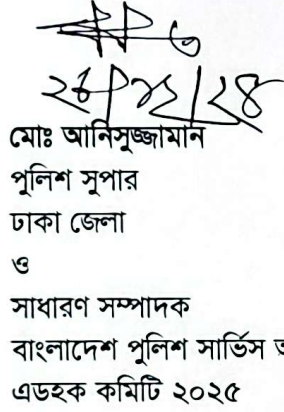 মোঃ আনিসুজ্জামান
পুলিশ সুপার
ঢাকা জেলা
ও
সাধারণ সম্পাদক
বাংলাদেশ পুলিশ সার্ভিস
এডহক কমিটি ২০২৫